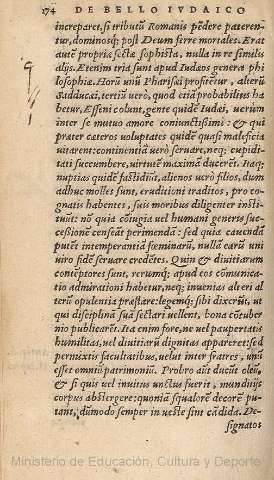 174 DE BELLO IVDAICO
increparet, si tributũ Romanis pẽdere paterentur,
dominosq́; post Deum ferre mortales. Erat
aut̃ propriæ sectæ sophista, nulla in re similis
alijs. Etenim tria sunt apud Iudæos genera philosophiæ.
Horũ unũ Pharisæi profitẽtur, alterũ
Sadducæi, tertiũ uerò, quod citã probabilius habetur,
Esseni colunt, gente quidẽ Iudæi, uerùm
inter se mutuo amore coniunctissimi: & qui
præter cæteros uoluptates quidẽ quasi maleficia
uitarent: continentiã uerò seruare, neq; cupiditati
succumbere, uirtutẽ maximã ducerẽt. Itaq;
nuptias quidẽ fastidiũt, alienos uerò filios, dum
adhuc molles sunt, eruditioni traditos, pro cognatis
habentes, suis moribus diligenter instituũt:
nõ quia cõiugia uel humani generis successiõem
censeãt perimendã: sed quia cauendã
putẽt intemperantiã fœminarũ, nullã earũ uni
uiro fidẽ seruare credẽtes. Quin & diuitiarum
contẽptores sunt, rerumq́; apud eos cõmunicatio
admirationi habetur, neq; inuenias alteri alterũ
opulentia præstare: legemq́; sibi dixerũt, ut
qui disciplinã suã sectari uellent, bona cõtubernio
publicarẽt. Ita enim fore, ne uel paupertatis
humilitas, uel diuitiarũ dignitas appareret: sed
permixtis facultatibus, uelut inter fratres, unũ
esset omniũ patrimoniũ. Probro aũt ducũt oleũ,
& si quis uel inuitus unctus fuerit, mundiijs
corpus abstergere: quoniã squalorẽ decorẽ putant,
dũmodo semper in ueste sint cãdida. Designatos
Ministerio de Educación, Cultura y Deporte